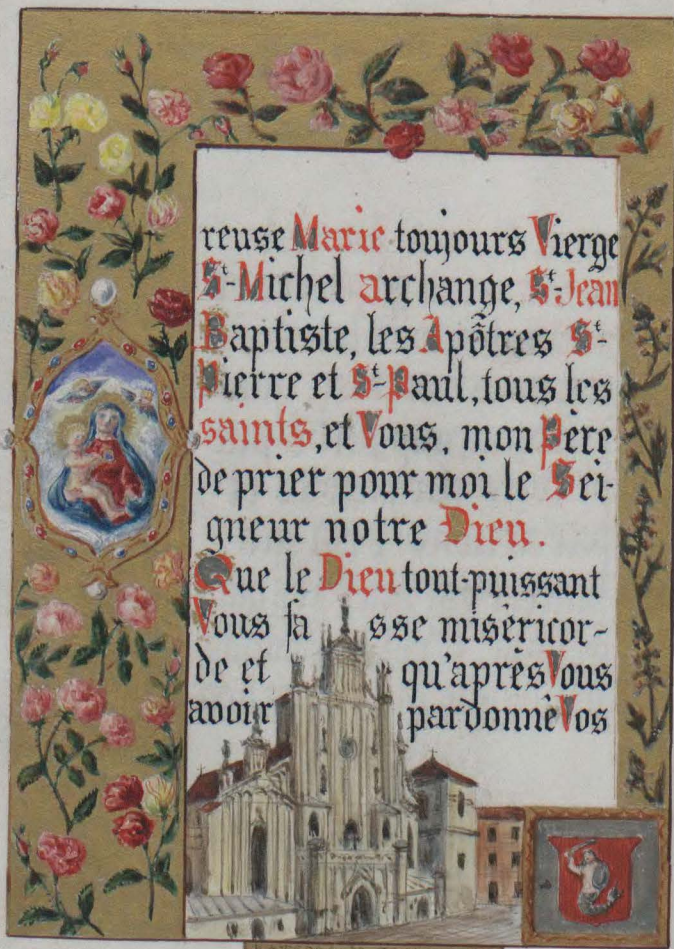 reuse Marie toujours Vierge
St-Michel archange, St-Jean
Baptiste, les Apôtres St-
Pierre et St-Paul, tous les
saints, et Vous, mon Père
de prier pour moi le Sei-
gneur notre Dieu.
Que le Dieu tout-puissant
Vous fasse miséricor-
de et qu'après Vous
avoir pardonné Vos